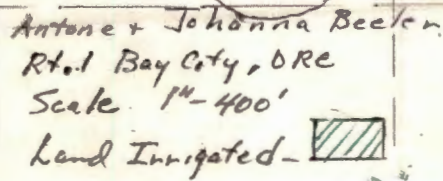 Antone + Johanna Beeler
Rt.1 Bay City, ORE
Scale 1"-400'
Land Irrigated-